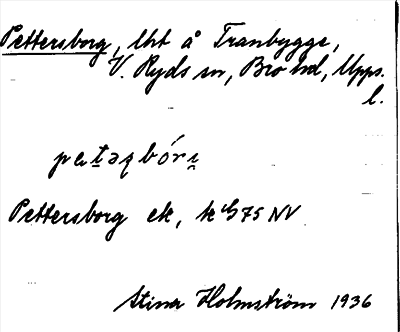 Pettersborg, lht å Tranbygge,
V. Ryds sn, Bro hd, Upps.
l.
Pettersborg ek, k
Stina Holmström 1936